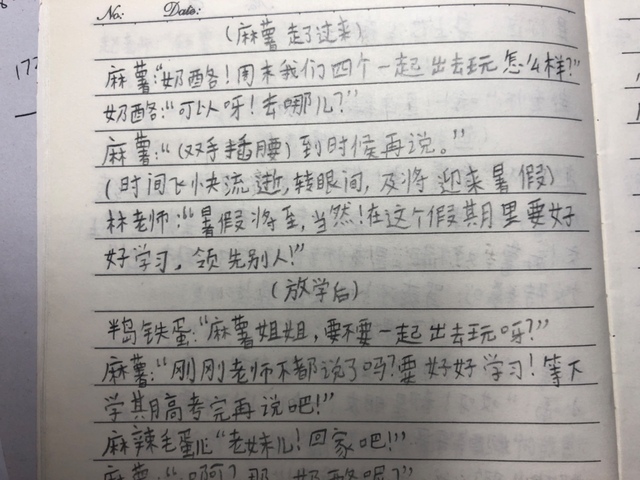 No: Date:
17
(麻薯走了过来)
麻薯:“奶酪!周末我们四个一起出去玩怎么样?”
奶酪:“可以呀!去哪儿?”
麻薯:“(双手插腰)到时候再说。”
(时间飞快流逝,转眼间,及将迎来暑假)
林老师:“暑假将至,当然!在这个假其月里要好
好学习,领先别人!”
(放学后)
半岛铁蛋:“麻薯姐姐,要不要一起出去玩呀?”
麻薯:“刚刚老师不都说了吗?要好好学习!等下
学期高考完再说吧!”
麻辣毛蛋儿“老妹儿!回家吧!”
麻薯:“啊?那 奶酪呢?”